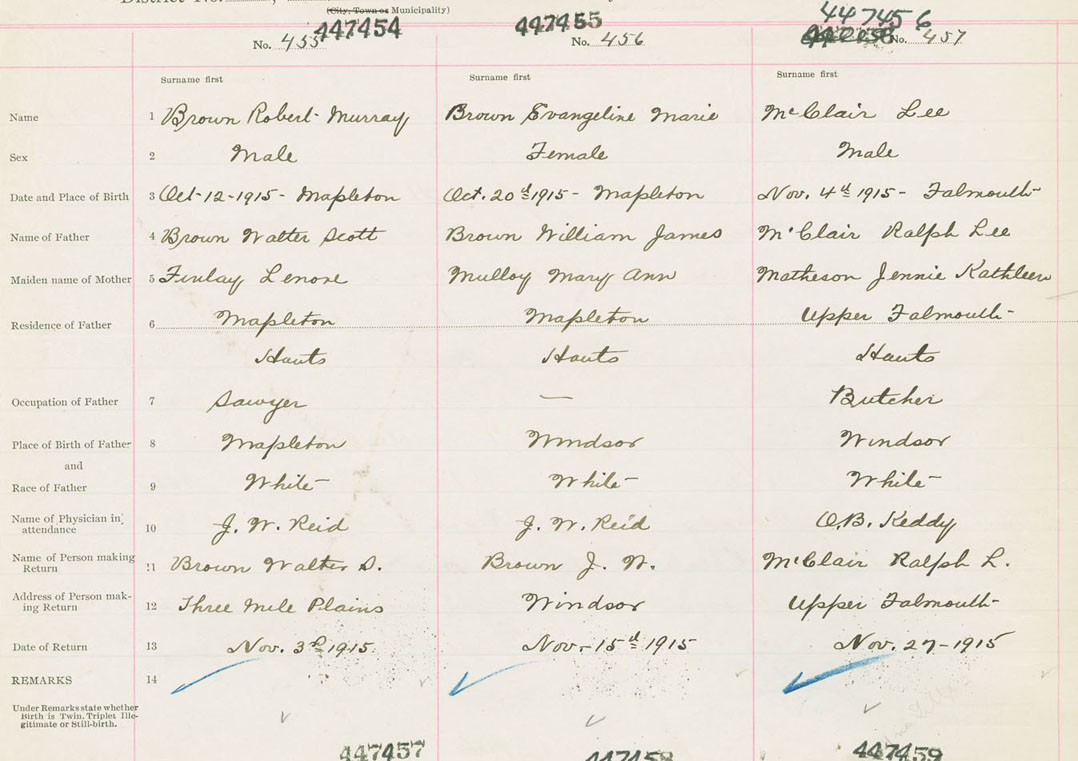 District No.
(City, Town or Municipality)
447454 447455 447456
No. 455 No. 456 No. 457
Surname first Surname first Surname first
Name 1 Brown Robert Murray Brown Evangeline Marie McClair Lee
Sex 2 Male Female Male
Date and Place of Birth 3 Oct-12-1915- Mapleton Oct. 20th 1915- Mapleton Nov. 4th 1915- Falmouth
Name of Father 4 Brown Walter Scott Brown William James McClair Ralph Lee
Maiden name of Mother 5 Finlay Lenore Mulloy Mary Ann Matheson Jennie Kathleen
Residence of Father 6 Mapleton Mapleton Upper Falmouth
Hants Hants Hants
Occupation of Father 7 Sawyer — Butcher
Place of Birth of Father 8 Mapleton Windsor Windsor
and
Race of Father 9 White White White
Name of Physician in attendance 10 J. W. Reid J. W. Reid O.B. Keddy
Name of Person making Return 11 Brown Walter S. Brown J. W. McClair Ralph L.
Address of Person mak-
ing Return 12 Three Mile Plains Windsor Upper Falmouth
Date of Return 13 Nov. 3rd 1915. Nov. 15th 1915 Nov. 27-1915
REMARKS 14
Under Remarks state whether
Birth is Twin, Triplet Ille-
gitimate or Still-birth.
447457 447458 447459